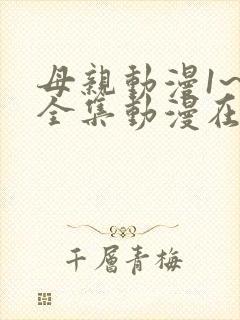 母親動漫1~
全集動漫在
千層青梅